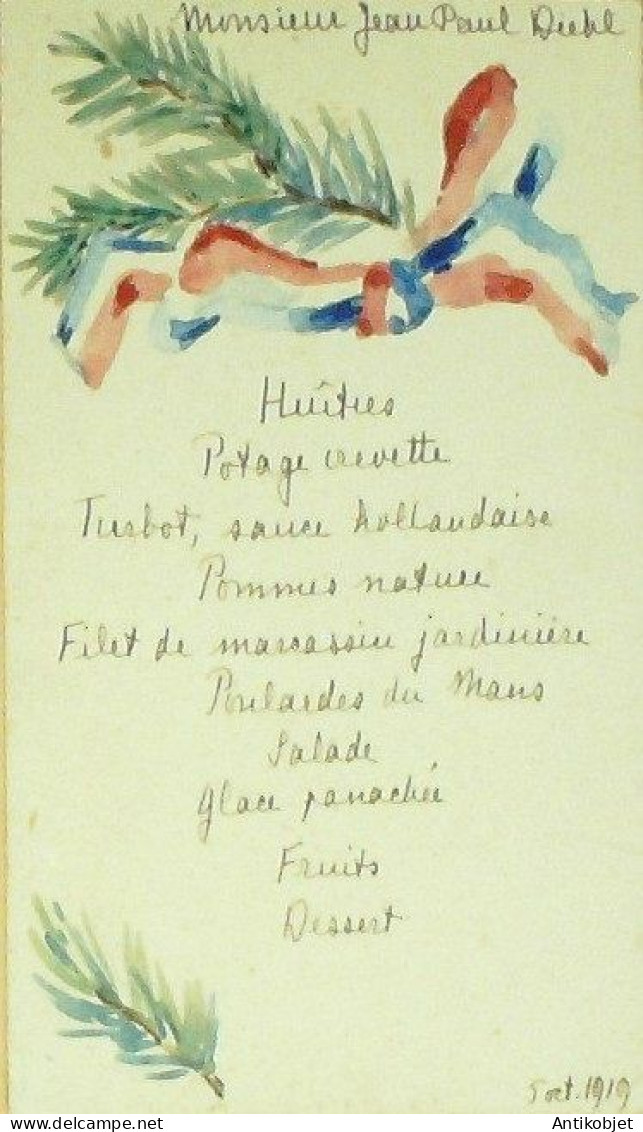 Monsieur Jean Paul Diehl
Huîtres
Potage crevette
Turbot, sauce hollandaise
Pommes nature
Filet de marcassin jardinière
Poulardes du Mans
Salade
Glace panachée
Fruits
Dessert
5 oct. 1919
© www.antikobjet.com - Antikobjet